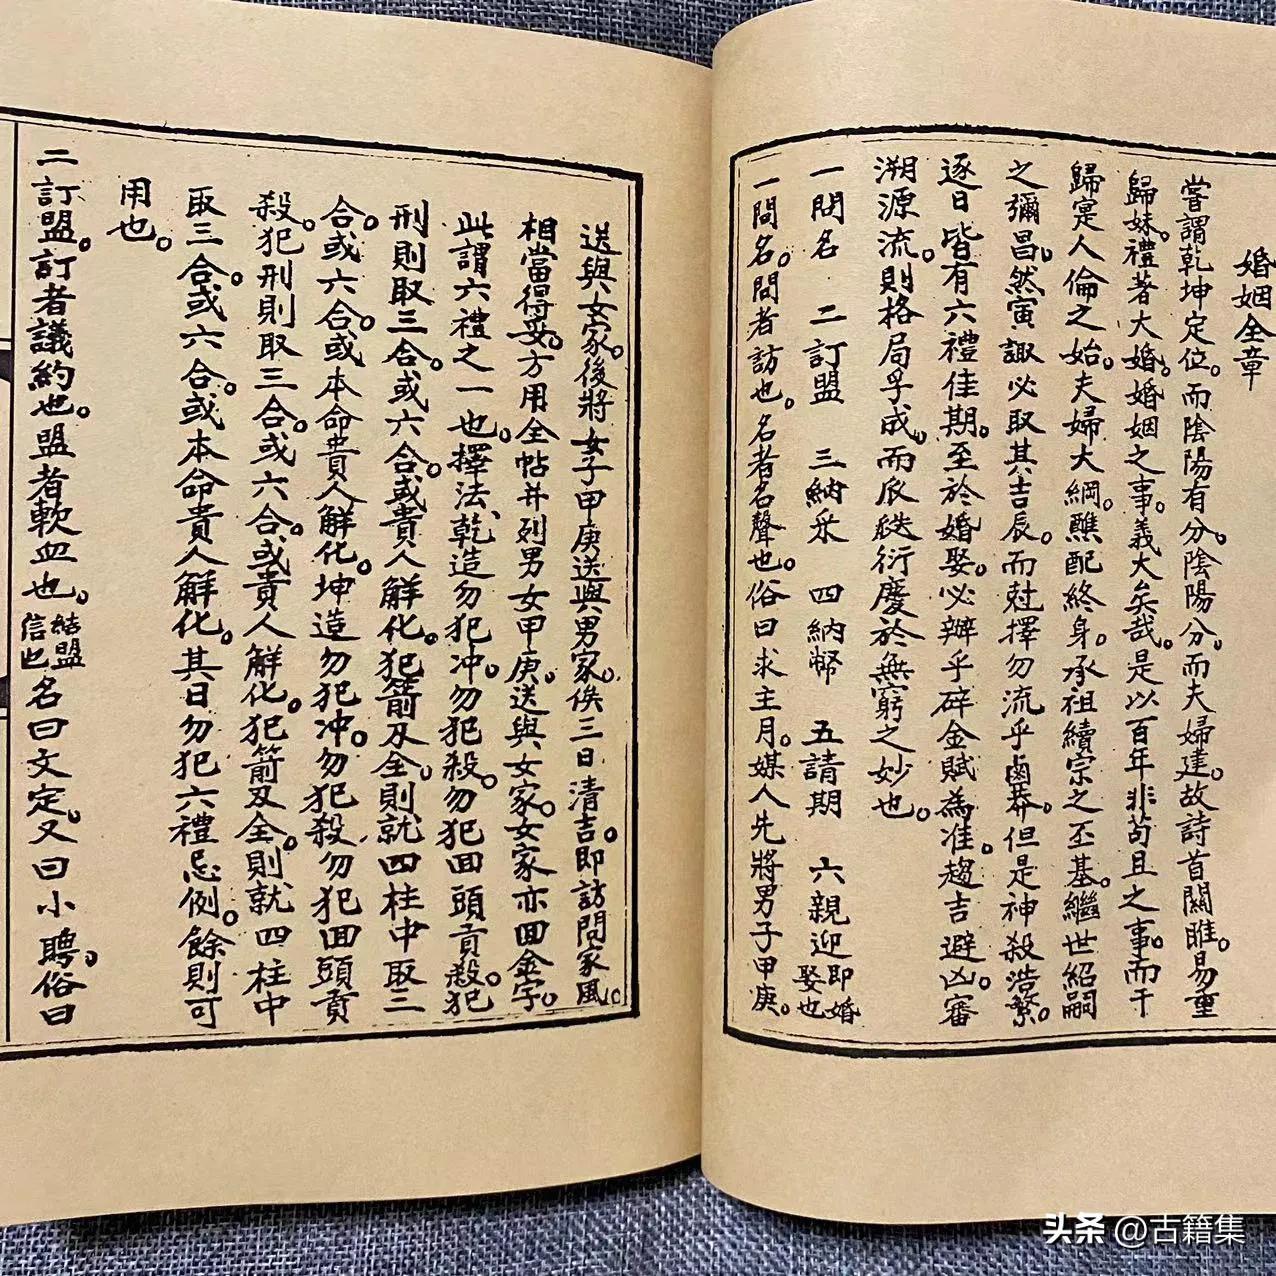 婚姻全章
嘗謂乾坤定位。而陰陽有分。陰陽分。而夫婦建。故詩首關雎。易重
歸妹。禮著大婚。婚姻之事。義大矣哉。是以百年非苟且之事。而于
歸寔人倫之始。夫婦大綱。醮配終身。承祖續宗之丕基。繼世紹嗣
之彌昌。然寅諏必取其吉辰。而尅擇勿流乎鹵莽。但是神殺浩繁。
逐日皆有六禮佳期。至於婚娶。必辦乎碎金賦為准。趨吉避凶。審
溯源流。則格局孚成。而瓜瓞衍慶於無窮之妙也。
一問名 二訂盟 三納采 四納幣 五請期 六親迎即婚娶也
一問名。問者訪也。名者名聲也。俗曰求主月。媒人先將男子甲庚。
送與女家。後將女子甲庚送與男家。俟三日清吉。即訪問家風。
相當得妥。方用全帖并列男女甲庚。送與女家。女家亦回金字。
此謂六禮之一也。擇法、乾造勿犯冲。勿犯殺。勿犯回頭貢殺。犯
刑則取三合。或六合。或貴人解化。犯箭刃全。則就四柱中取三
合。或六合。或本命貴人解化。坤造勿犯冲。勿犯殺勿犯回頭貢
殺。犯刑則取三合。或六合。或貴人解化。犯箭刃全。則就四柱中
取三合。或六合。或本命貴人解化。其日勿犯六禮忌例。餘則可
用也。
二訂盟。訂者議約也。盟者軟血也。結盟信也名曰文定。又曰小聘。俗曰
头条 @古籍集